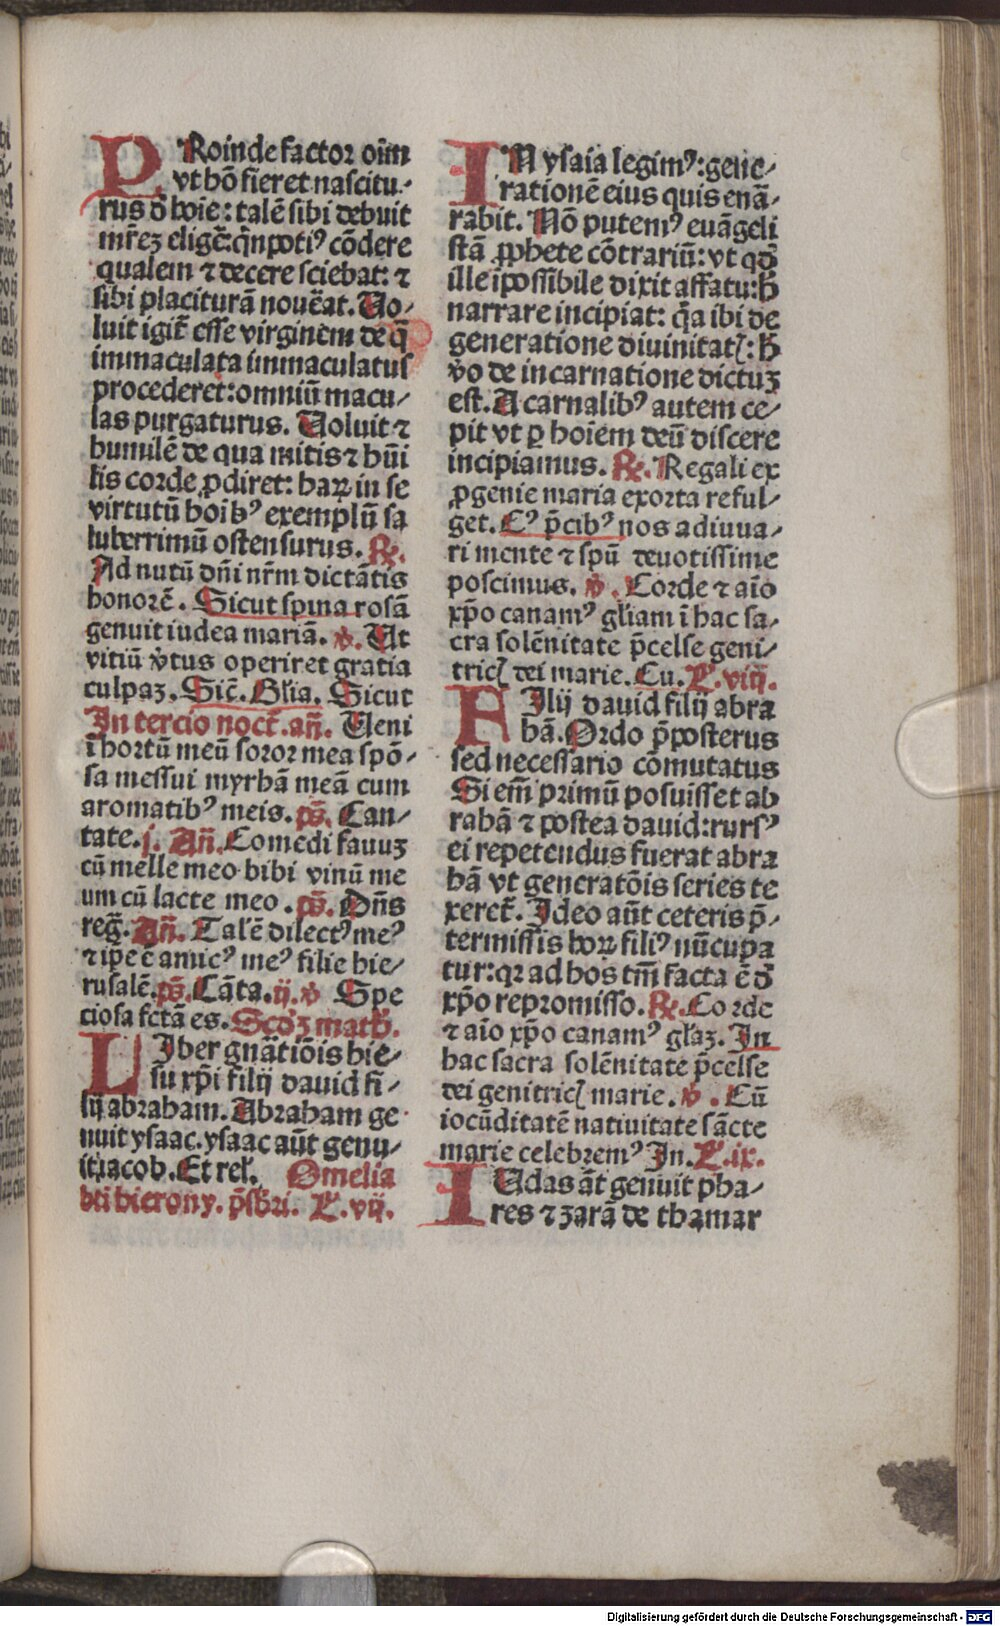 PRoinde factor oīm
vt hō fieret nascitu-
rus đ hoīe: talē sibi debuit
mr̄eꝫ eligē: q̄npotiꝰ cōdere
qualem ⁊ decere sciebat: ⁊
sibi placiturā nouēat. Uo-
luit igit̄ esse virginem de q̄
immaculata immaculatus
procederet: omniū macu-
las purgaturus. Uoluit ⁊
humilē de qua mitis ⁊ hūi
lis corde ꝓdiret: haꝝ in se
virtutū hoībꝰ exemplū sa
luberrimū ostensurus. ℟.
Ad nutū dn̄i nr̄m dictātis
honorē. Sicut spina rosā
genuit iudea mariā. ℣. Ut
vitiū v̓tus operiret gratia
culpaꝫ. Sic̄. Gl̄ia. Sicut
In tercio noct̄. an̄. Ueni
ī hortū meū soror mea spō-
sa messui myrhā meā cum
aromatibꝰ meis. ps̄. Can-
tate. j. An̄. Comedi fauuꝫ
cū melle meo bibi vinū me
um cū lacte meo. ps̄. Dn̄s
reḡ. An̄. Tal̓ē dilectꝰ meꝰ
⁊ ip̄e ē amicꝰ meꝰ filie hie-
rusalē. ps̄. Cāta. ij. ℣ Spe
ciosa fctā es. Scđꝫ matħ.
LIber gnātiōis hie-
su xp̄i filij dauid fi-
lij abraham. Abraham ge
nuit ysaac. ysaac aūt genu-
it iacob. Et rel̓. Omelia
bt̄i hierony. p̄sb̄ri. L̓. vij.
IN ysaia legimꝰ: gene-
rationē eius quis enā-
rabit. Nō putemꝰ euāgeli
stā ꝓphete cōtrariū: vt qđ
ille īpossibile dixit affatu: ħ
narrare incipiat: q̄a ibi de
generatione diuinitatꝭ: ħ
v̓o de incarnatione dictuꝫ
est. A carnalibꝰ autem ce-
pit vt ꝑ hoīem deū discere
incipiamus. ℟. Regali ex
ꝓgenie maria exorta reful-
get. Cꝰ p̄cibꝰ nos adiuua-
ri mente ⁊ spū deuotissime
poscimus. ℣. Corde ⁊ aīo
xp̄o canamꝰ gl̄iam ī hac sa-
cra solēnitate p̄celse geni-
tricꝭ dei marie. Cu. L̓. viij.
FIlij dauid filij abra
hā. Ordo p̄posterus
sed necessario cōmutatus
Si em̄ primū posuisset ab
rahā ⁊ postea dauid: rursꝰ
ei repetendus fuerat abra
hā vt generatōis series te
xeret̄. Ideo aūt ceteris p̄-
termissis hoꝝ filiꝰ nūcupa
tur: qꝛ ad hos tm̄ facta ē đ
xp̄o repromisso. ℟. Corde
⁊ aīo xp̄o canamꝰ gl̓aꝫ. In
hac sacra solēnitate p̄celse
dei genitricꝭ marie. ℣. Cū
iocūditatē natiuitate sācte
marie celebremꝰ In. L̓. ix.
IUdas āt genuit pha-
res ⁊ zarā de thamar
Digitalisierung gefördert durch die Deutsche Forschungsgemeinschaft - DFG